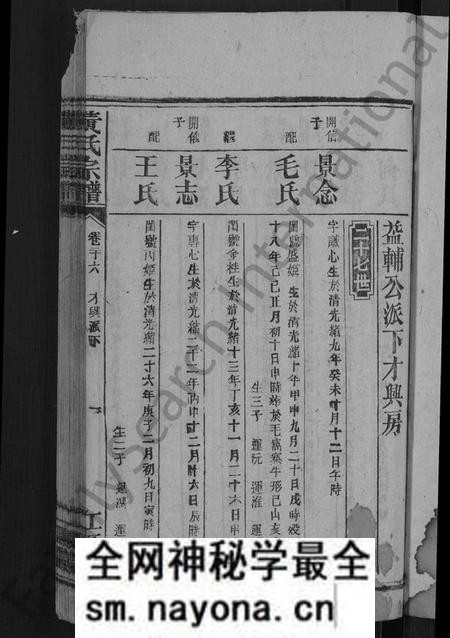 益輔公派下才興房
二十七世
開信子
景念
字誠心生於清光緒九年癸未十月十二日午時
配
毛氏
閨號
姬生於清光緒十年甲申九月二十日戌時歿
十八年己巳正月初十日申時
於毛
寨牛形巳山亥
生三子 運玩 運淮 運
李氏
閨號金姓生於清光緒十三年丁亥十一月二十六日申
開儀子
景志
字專心生於清光緒二十二年丙申十二月廿六日辰時
配
王氏
閨號丙姬生於清光緒二十六年庚子二月初九日寅時
生二子 運
運
黃氏宗譜
卷二十六 才興派下
一
江
FamilySearch International
全网神秘学最全
sm.nayona.cn